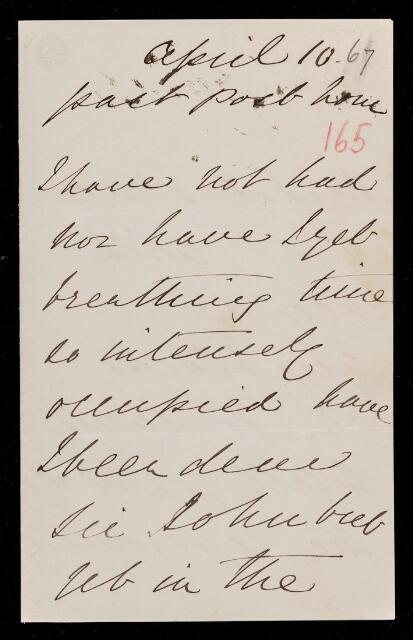 April 10. 67
past post hour
165
I have not had
nor have I yet
breathing time
so intensely
occupied have
I been dear
Sir John but
yet in the